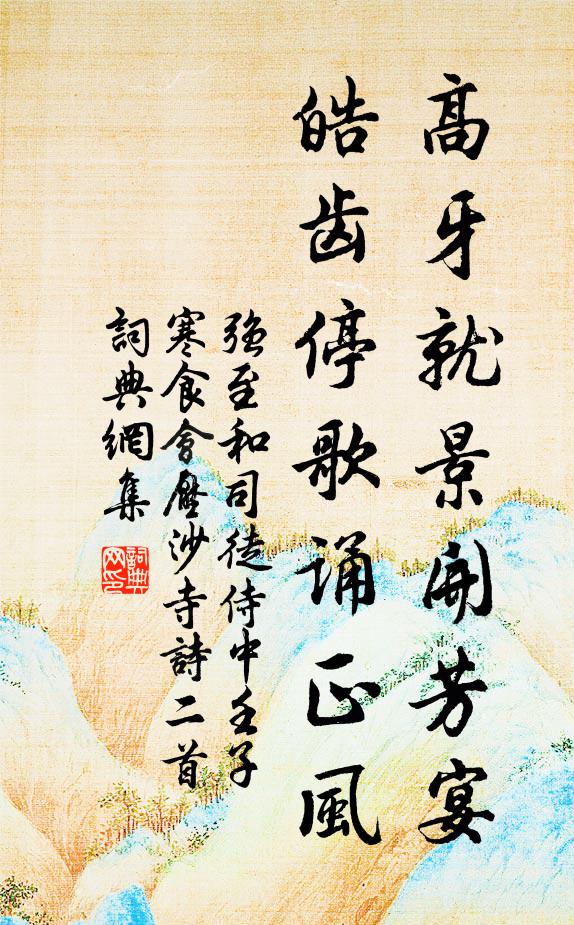 高牙就景開芳宴
皓齿停歌诵正風
強至和司徒侍中壬子
寒食會壓沙寺詩二首
詞典網集
詞典
网印